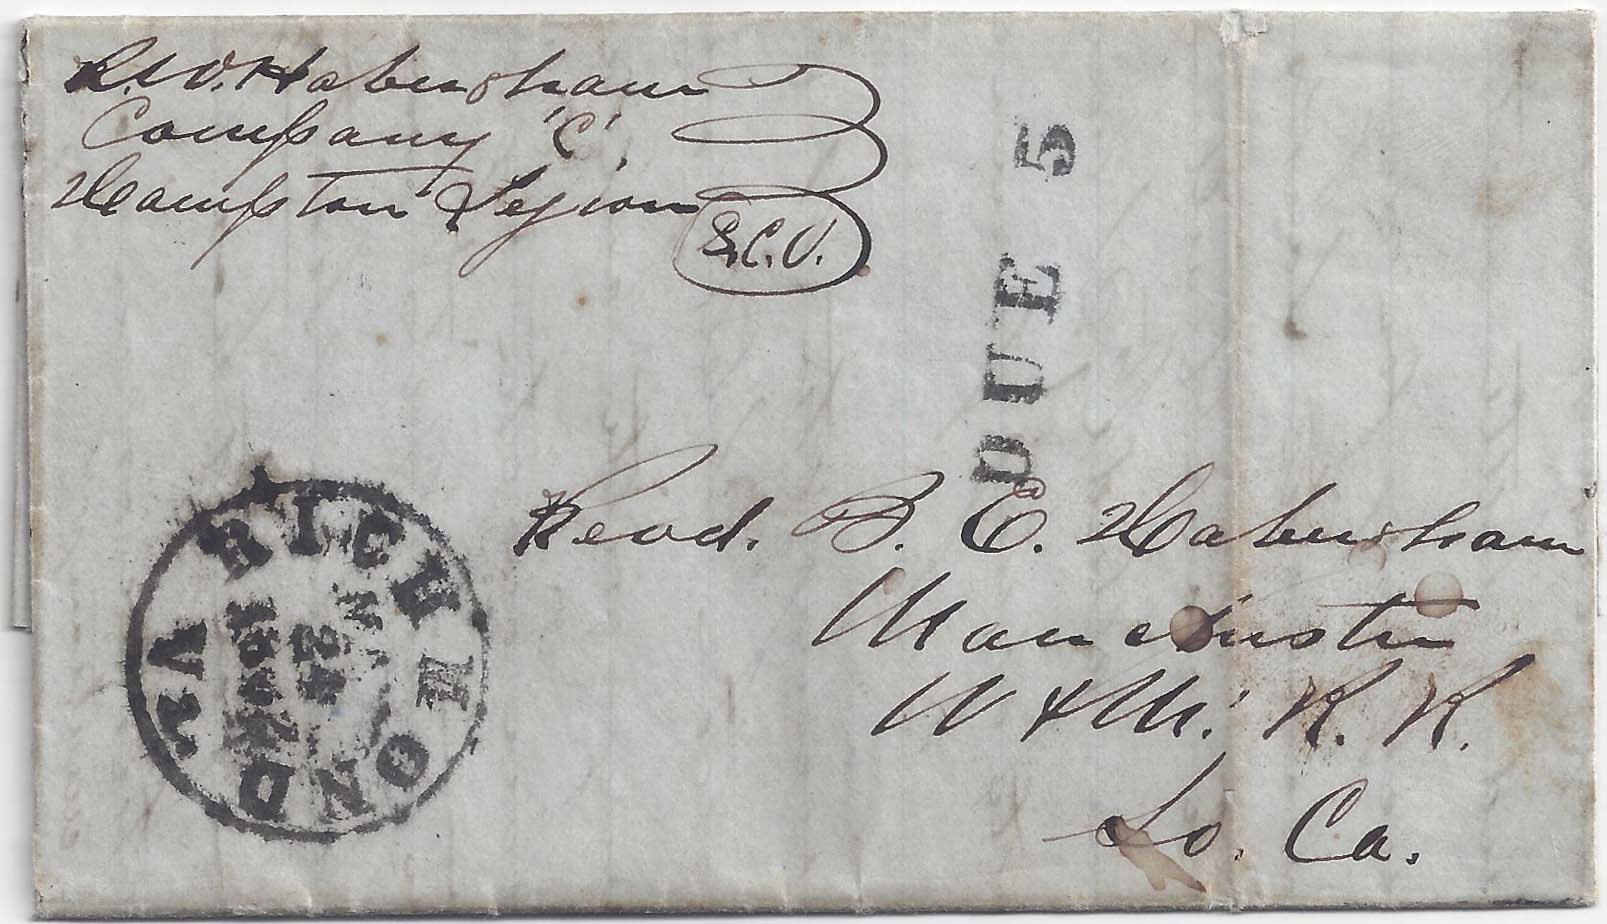 R.W. Habersham
Company 'C',
Hampton Legion
S.C.V.
DUE 5
Revd. B. E. Habersham
Manchester
W & M. R. R.
So. Ca.
RICHMOND VA.
24